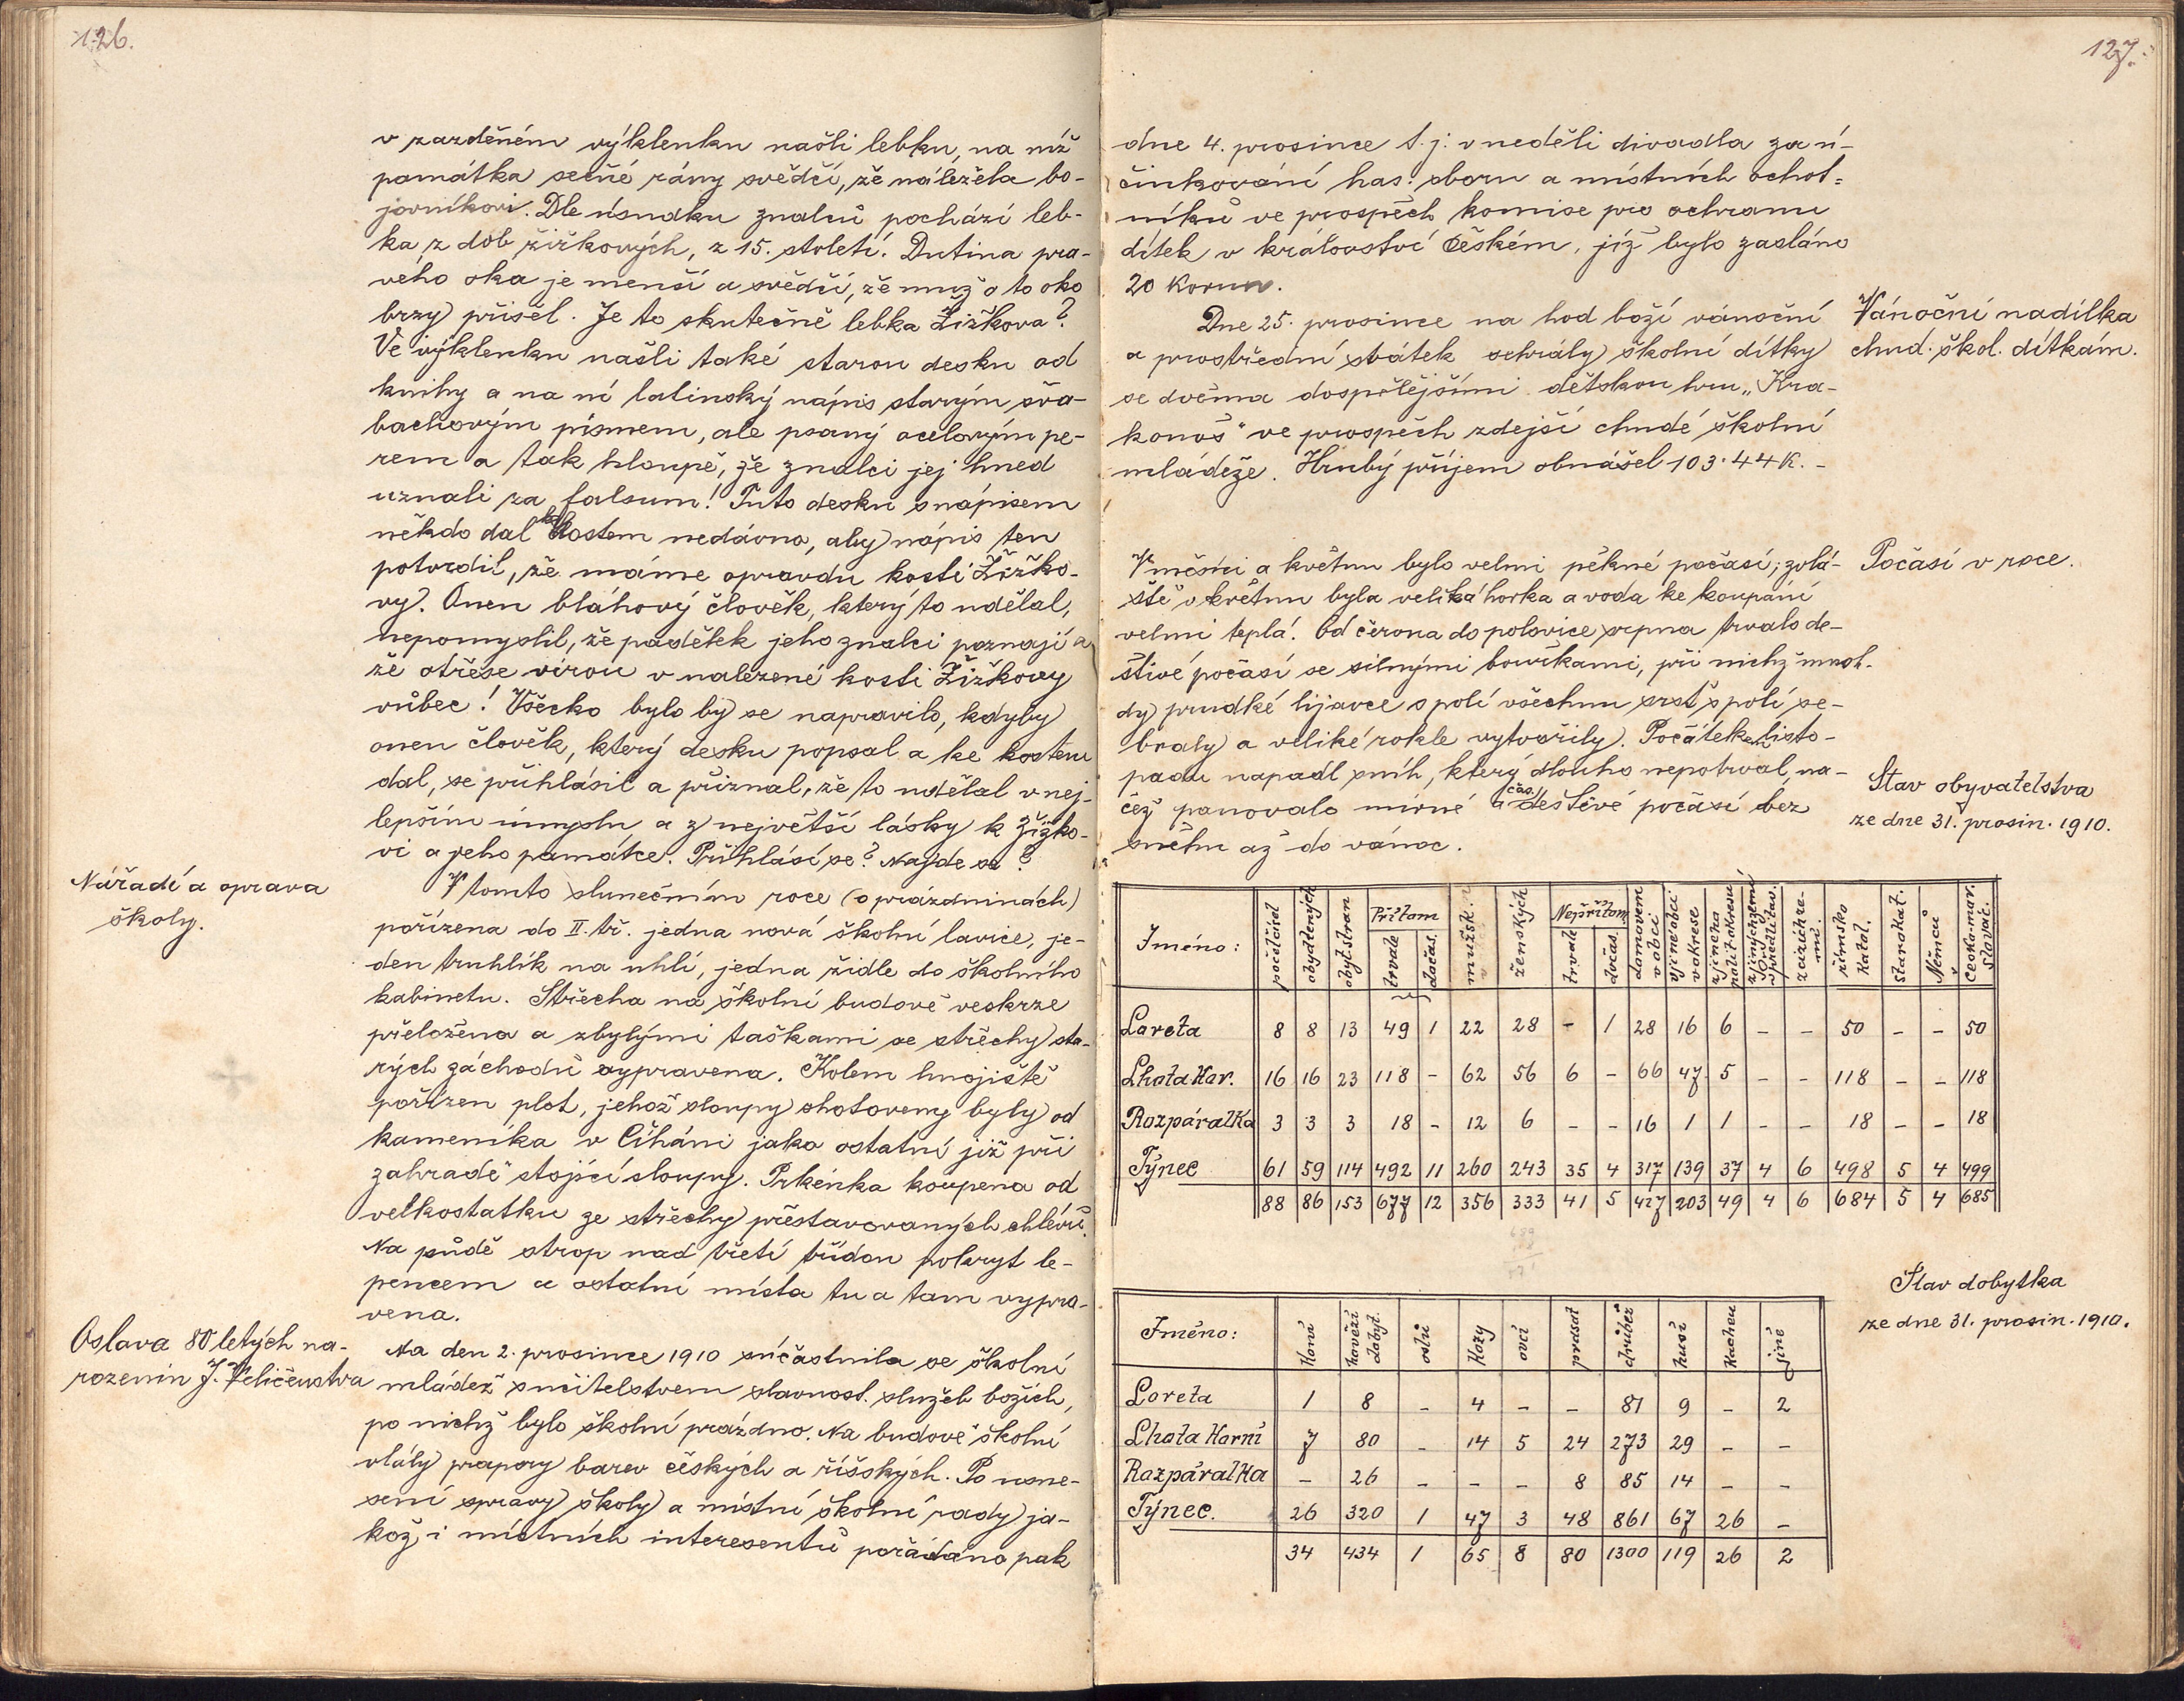 126.
v zazděném výklenku našli lebku, na níž
památka sečné rány svědčí, že náležela bo-
jovníkovi. Dle úsudku znalců pochází leb-
ka z dob žižkových, z 15. století. Dutina pra-
vého oka je menší a svědčí, že muž o to oko
brzy přišel. Je to skutečně lebka Žižkova?
Ve výklenku našli také starou desku od
knihy a na ní latinský nápis starým šva-
bachovým písmem, ale psaný ocelovým pe-
rem a tak hloupě, že znalci jej hned
uznali za falsum! Tuto desku s nápisem
někdo dal ke kostem nedávno, aby nápis ten
potvrdil, že máme opravdu kosti Žižko-
vy. Onen bláhový člověk, který to udělal,
nepomyslil, že padělek jeho znalci poznají a
že otřese vírou v nalezené kosti Žižkovy
vůbec! Všecko bylo by se napravilo, kdyby
onen člověk, který desku popsal a ke kostem
dal, se přihlásil a přiznal, že to udělal v nej-
lepším úmyslu a z největší lásky k Žižko-
vi a jeho památce. Přihlásí se? Najde se?
Nářadí a oprava
školy.
V tomto slunečním roce (o prázdninách)
pořízena do II. tř. jedna nová školní lavice, je-
den truhlík na uhlí, jedna židle do školního
kabinetu. Střecha na školní budově veskrze
přeložena a zbylými taškami se střechy sta-
rých záchodů vypravena. Kolem hnojiště
pořízen plot, jehož sloupy shotoveny byly od
kameníka v Číháni jako ostatní již při
zahradě stojící sloupy. Prkénka koupena od
velkostatku ze střechy přestavovaných chlévů.
Na půdě strop nad třetí třídou pokryt le-
pencem a ostatní místa tu a tam vypra-
vena.
Oslava 80 letých na-
rozenin J. Veličenstva
Na den 2. prosince 1910 súčastnila se školní
mládež s učitelstvem slavnost. služeb božích,
po nichž bylo školní prázdno. Na budově školní
vlály prapory barev českých a říšských. Po usne-
sení správy školy a místní školní rady ja-
kož i místních interesentů pořádáno pak
127.
dne 4. prosince t. j. v neděli divadlo za ú-
činkování has. sboru a místních ochot-
níků ve prospěch komise pro ochranu
dítek v království Českém, jíž bylo zasláno
20 korun.
Vánoční nadílka
chud. škol. dítkám.
Dne 25. prosince na hod boží vánoční
a prostřední svátek sehrály školní dítky
se dvěma dospělejšími dětskou hru "Kra-
konoš" ve prospěch zdejší chudé školní
mládeže. Hrubý příjem obnášel 103·44 K. -
Počasí v roce.
V měsíci a květnu bylo velmi pěkné počasí; zvlá-
ště v květnu byla veliká horka a voda ke koupání
velmi teplá. Od června do polovice srpna trvalo de-
štivé počasí se silnými bouřkami, při nichž mnoh-
dy prudké lijavce s polí všechnu srsť s polí se-
braly a veliké rokle vytvořily. Počátkem listo-
padu napadl sníh, který dlouho nepotrval, na-
čež panovalo mírné a čas. deštivé počasí bez
sněhu až do vánoc.
Stav obyvatelstva
ze dne 31. prosin. 1910.
Jméno: popisčísel obydlených obyt. stran Přítom trvale dočas. mužsk. ženských Nepřítom trvale dočas. domovem v obci v jiné obci v okrese z jiného polit. okresu z jiných zemí v předlitav. z cizích ze-mí. římsko katol. Starokat. Němců Česko-mor. slovač.
Loreta 8 8 13 49 1 22 28 - 1 28 16 6 - - 50 - - 50
Lhota Hor. 16 16 23 118 - 62 56 6 - 66 47 5 - - 118 - - 118
Rozpáralka 3 3 3 18 - 12 6 - - 16 1 1 - - 18 - - 18
Týnec 61 59 114 492 11 260 243 35 4 317 139 37 4 6 498 5 4 499
88 86 153 677 12 356 333 41 5 427 203 49 4 6 684 5 4 685
Stav dobytka
ze dne 31. prosin. 1910.
Jméno: Koní hovězí dobyt. oslů Kozy ovcí prasat drůbež husí Kachen jiné
Loreta 1 8 - 4 - - 81 9 - 2
Lhota Horní 7 80 - 14 5 24 273 29 - -
Rozpáralka - 26 - - - 8 85 14 - -
Týnec. 26 320 1 47 3 48 861 67 26 -
34 434 1 65 8 80 1300 119 26 2